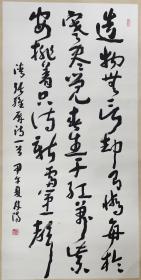 造物無言却有情每於
寒盡覺春生千紅萬紫
安排着只待新雷第一聲
清張維屏詩一首甲午夏